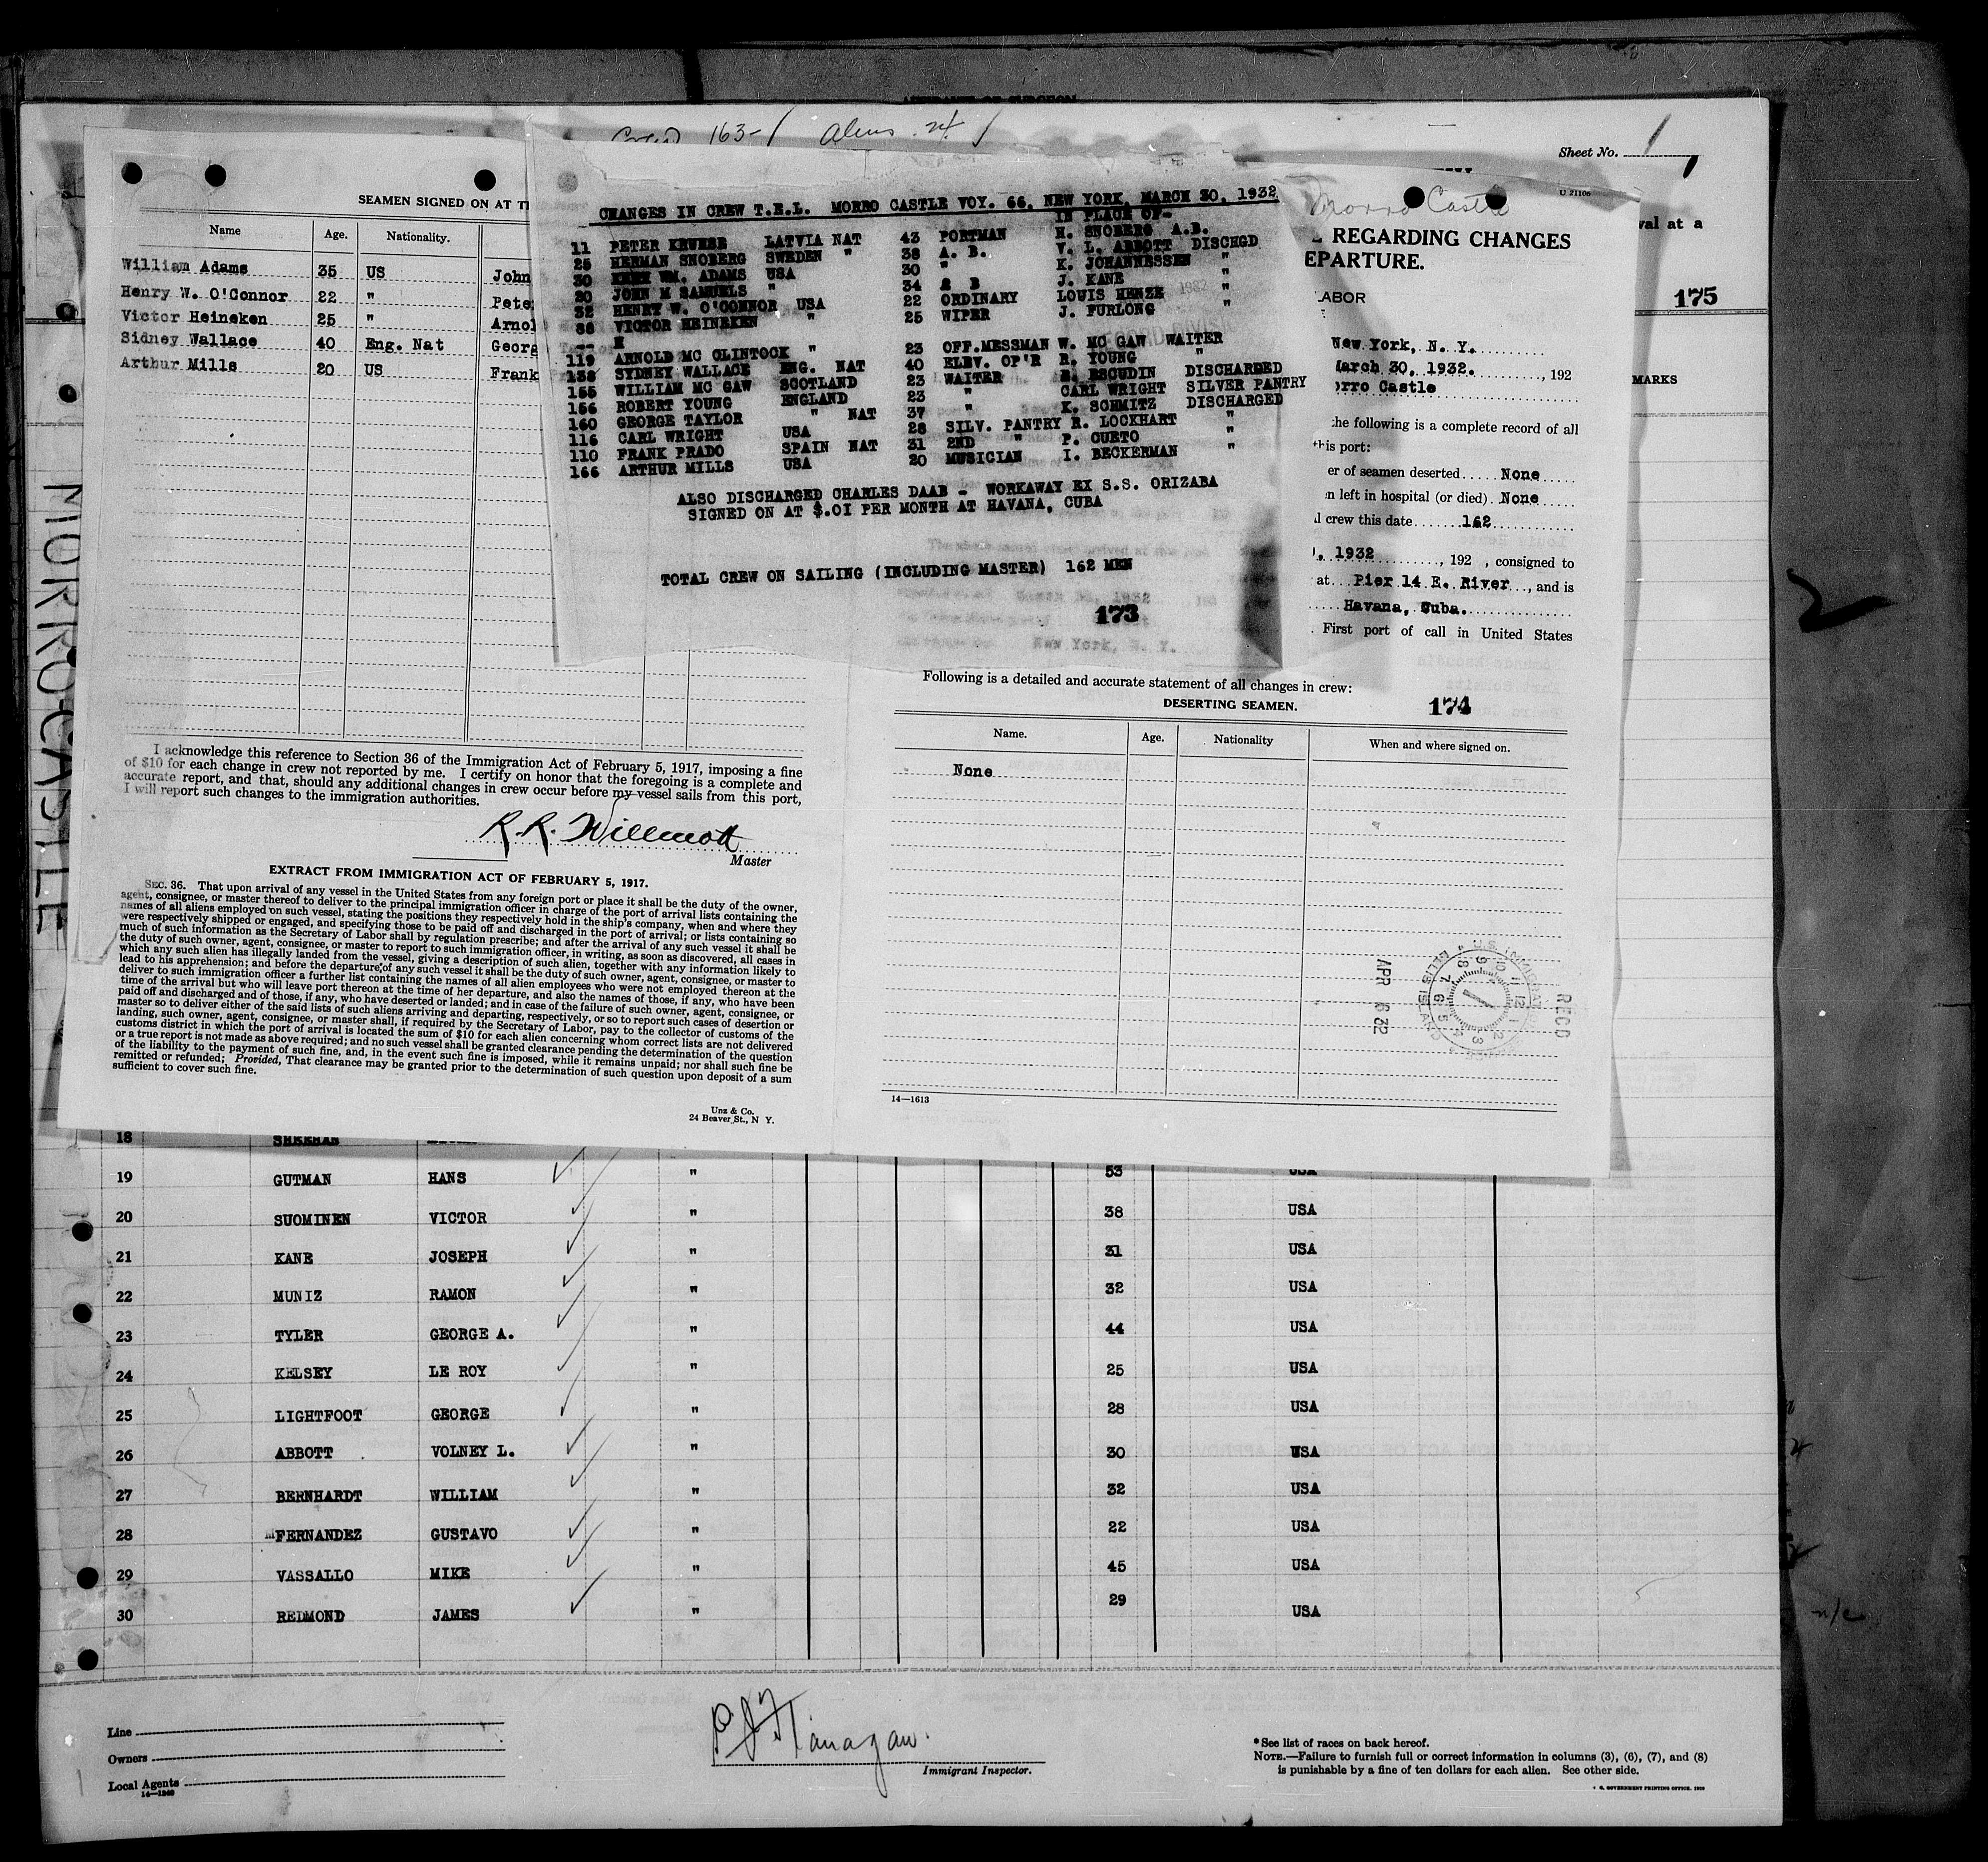 Crew 163- / Aliens 24 /
Sheet No. 1
U 21106
Morro Castle
SEAMEN SIGNED ON AT
Name Age. Nationality.
William Adams 35 US John
Henry W. O'Connor 22 " Pete
Victor Heineken 25 " Arnol
Sidney Wallace 40 Eng. Nat Georg
Arthur Mills 20 US Frank
CHANGES IN CREW T.E.L. MORRO CASTLE VOY. 66, NEW YORK, MARCH 30, 1932
IN PLACE OF-
11 PETER KRUESE LATVIA NAT 43 PORTMAN H. SNOBERG A.B.
25 HERMAN SNOBERG SWEDEN " 38 A. B. V. L. ABBOTT DISCHGD
30 WM. ADAMS USA 30 " K. JOHANNESSEN "
20 JOHN M SAMUELS " 34 J. KANE "
32 HENRY W. O'CONNOR USA 22 ORDINARY LOUIS HENZE "
88 VICTOR HEINEKEN " 25 WIPER J. FURLONG "
119 ARNOLD MC CLINTOCK " 23 OFF.MESSMAN W. MC GAW WAITER
138 SYDNEY WALLACE ENG. NAT 40 ELEV. OP'R R. YOUNG "
155 WILLIAM MC GAW SCOTLAND 23 WAITER ESCUDIN DISCHARGED
156 ROBERT YOUNG ENGLAND 23 " CARL WRIGHT SILVER PANTRY
160 GEORGE TAYLOR " NAT 37 " K. SCHMITZ DISCHARGED
116 CARL WRIGHT USA 28 SILV. PANTRY R. LOCKHART "
110 FRANK PRADO SPAIN NAT 31 2ND " P. CUETO "
166 ARTHUR MILLS USA 20 MUSICIAN I. BECKERMAN "
ALSO DISCHARGED CHARLES DAAB - WORKAWAY EX S.S. ORIZABA
SIGNED ON AT $.01 PER MONTH AT HAVANA, CUBA
TOTAL CREW ON SAILING (INCLUDING MASTER) 162 MEN
173
REGARDING CHANGES
EPARTURE.
val at a
LABOR
175
New York, N. Y.
March 30, 1932. , 192
MARKS
orro Castle
the following is a complete record of all
this port:
er of seamen deserted None
n left in hospital (or died) None
l crew this date 162
, 1932 , 192 , consigned to
at Pier 14 E. River , and is
Havana, Cuba.
First port of call in United States
Following is a detailed and accurate statement of all changes in crew:
DESERTING SEAMEN.
174
Name. Age. Nationality When and where signed on.
None
RECD
U.S. IMMIGRATION SERVICE ELLIS ISLAND
APR 6 32
14—1613
MORRO CASTLE
I acknowledge this reference to Section 36 of the Immigration Act of February 5, 1917, imposing a fine
of $10 for each change in crew not reported by me. I certify on honor that the foregoing is a complete and
accurate report, and that, should any additional changes in crew occur before my vessel sails from this port,
I will report such changes to the immigration authorities.
R.R. Willmott
Master
EXTRACT FROM IMMIGRATION ACT OF FEBRUARY 5, 1917.
SEC. 36. That upon arrival of any vessel in the United States from any foreign port or place it shall be the duty of the owner,
agent, consignee, or master thereof to deliver to the principal immigration officer in charge of the port of arrival lists containing the
names of all aliens employed on such vessel, stating the positions they respectively hold in the ship's company, when and where they
were respectively shipped or engaged, and specifying those to be paid off and discharged in the port of arrival; or lists containing so
much of such information as the Secretary of Labor shall by regulation prescribe; and after the arrival of any such vessel it shall be
the duty of such owner, agent, consignee, or master to report to such immigration officer, in writing, as soon as discovered, all cases in
which any such alien has illegally landed from the vessel, giving a description of such alien, together with any information likely to
lead to his apprehension; and before the departure of any such vessel it shall be the duty of such owner, agent, consignee, or master to
deliver to such immigration officer a further list containing the names of all alien employees who were not employed thereon at the
time of the arrival but who will leave port thereon at the time of her departure, and also the names of those, if any, who have been
paid off and discharged and of those, if any, who have deserted or landed; and in case of the failure of such owner, agent, consignee, or
master so to deliver either of the said lists of such aliens arriving and departing, respectively, or so to report such cases of desertion or
landing, such owner, agent, consignee, or master shall, if required by the Secretary of Labor, pay to the collector of customs of the
customs district in which the port of arrival is located the sum of $10 for each alien concerning whom correct lists are not delivered
or a true report is not made as above required; and no such vessel shall be granted clearance pending the determination of the question
of the liability to the payment of such fine, and, in the event such fine is imposed, while it remains unpaid; nor shall such fine be
remitted or refunded; Provided, That clearance may be granted prior to the determination of such question upon deposit of a sum
sufficient to cover such fine.
Unz & Co.
24 Beaver St., N Y.
18 SHEEHAN
19 GUTMAN HANS " 53 USA
20 SUOMINEN VICTOR " 38 USA
21 KANE JOSEPH " 31 USA
22 MUNIZ RAMON " 32 USA
23 TYLER GEORGE A. " 44 USA
24 KELSEY LE ROY " 25 USA
25 LIGHTFOOT GEORGE " 28 USA
26 ABBOTT VOLNEY L. " 30 USA
27 BERNHARDT WILLIAM " 32 USA
28 FERNANDEZ GUSTAVO " 22 USA
29 VASSALLO MIKE " 45 USA
30 REDMOND JAMES " 29 USA
Line
Owners
Local Agents
14—1240
P J Flanagan.
Immigrant Inspector.
* See list of races on back hereof.
NOTE.—Failure to furnish full or correct information in columns (3), (6), (7), and (8)
is punishable by a fine of ten dollars for each alien. See other side.
GOVERNMENT PRINTING OFFICE